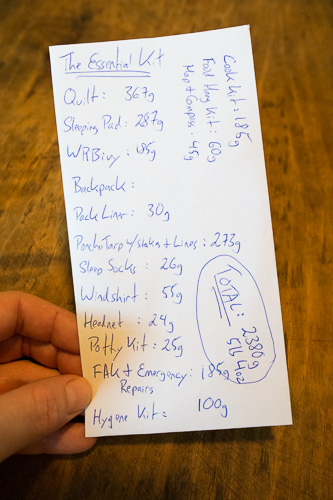 The Essential Kit
Quilt: 367g
Sleeping Pad: 287g
WRBivy: 185g
Backpack:
Pack Liner: 30g
PonchoTarp w/stakes + Lines: 273g
Sleep Socks: 26g
Windshirt: 55g
Headnet: 24g
Potty Kit: 25g
FAK + Emergency: 185g
Repairs
Hygene Kit: 100g
Cook Kit: 185g
Food Hang Kit: 60g
Map + Compass: 45g
TOTAL: 2380g
5lb 4oz